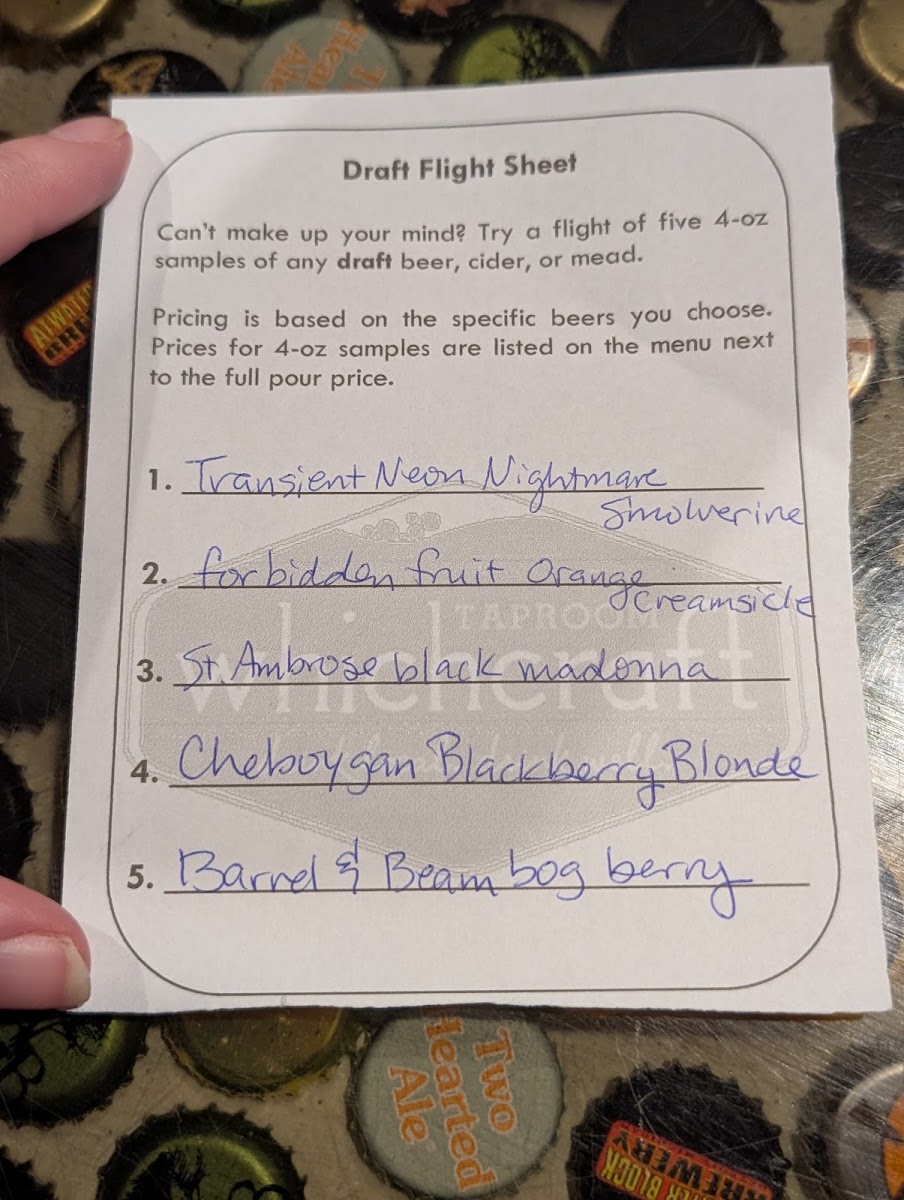 Two Hearted Ale
Draft Flight Sheet
Can't make up your mind? Try a flight of five 4-oz
samples of any draft beer, cider, or mead.
Pricing is based on the specific beers you choose.
Prices for 4-oz samples are listed on the menu next
to the full pour price.
1. Transient Neon Nightmare
Smolverine
2. forbidden fruit Orange
creamsicle
TAPROOM
whichcraft
3. St. Ambrose black madonna
4. Cheboygan Blackberry Blonde
5. Barrel & Beam bog berry
ALWAYS
Two
Hearted
Ale
BLOCK
BREWERY